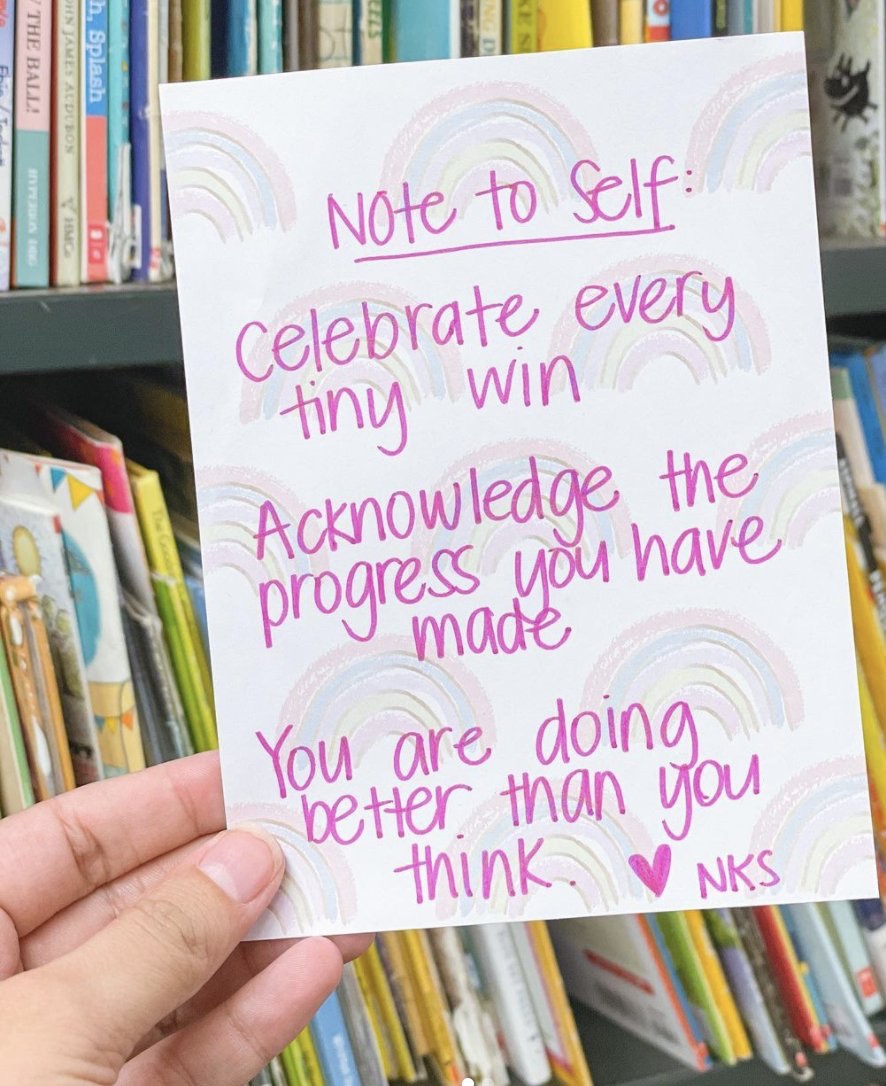 THE BALL!
HYPERION
JOHN JAMES AUDUBON
HMG
h, Splash
Note to Self:
Celebrate every
tiny win
Acknowledge the
progress you have
made
You are doing
better than you
think. ♥ NKS